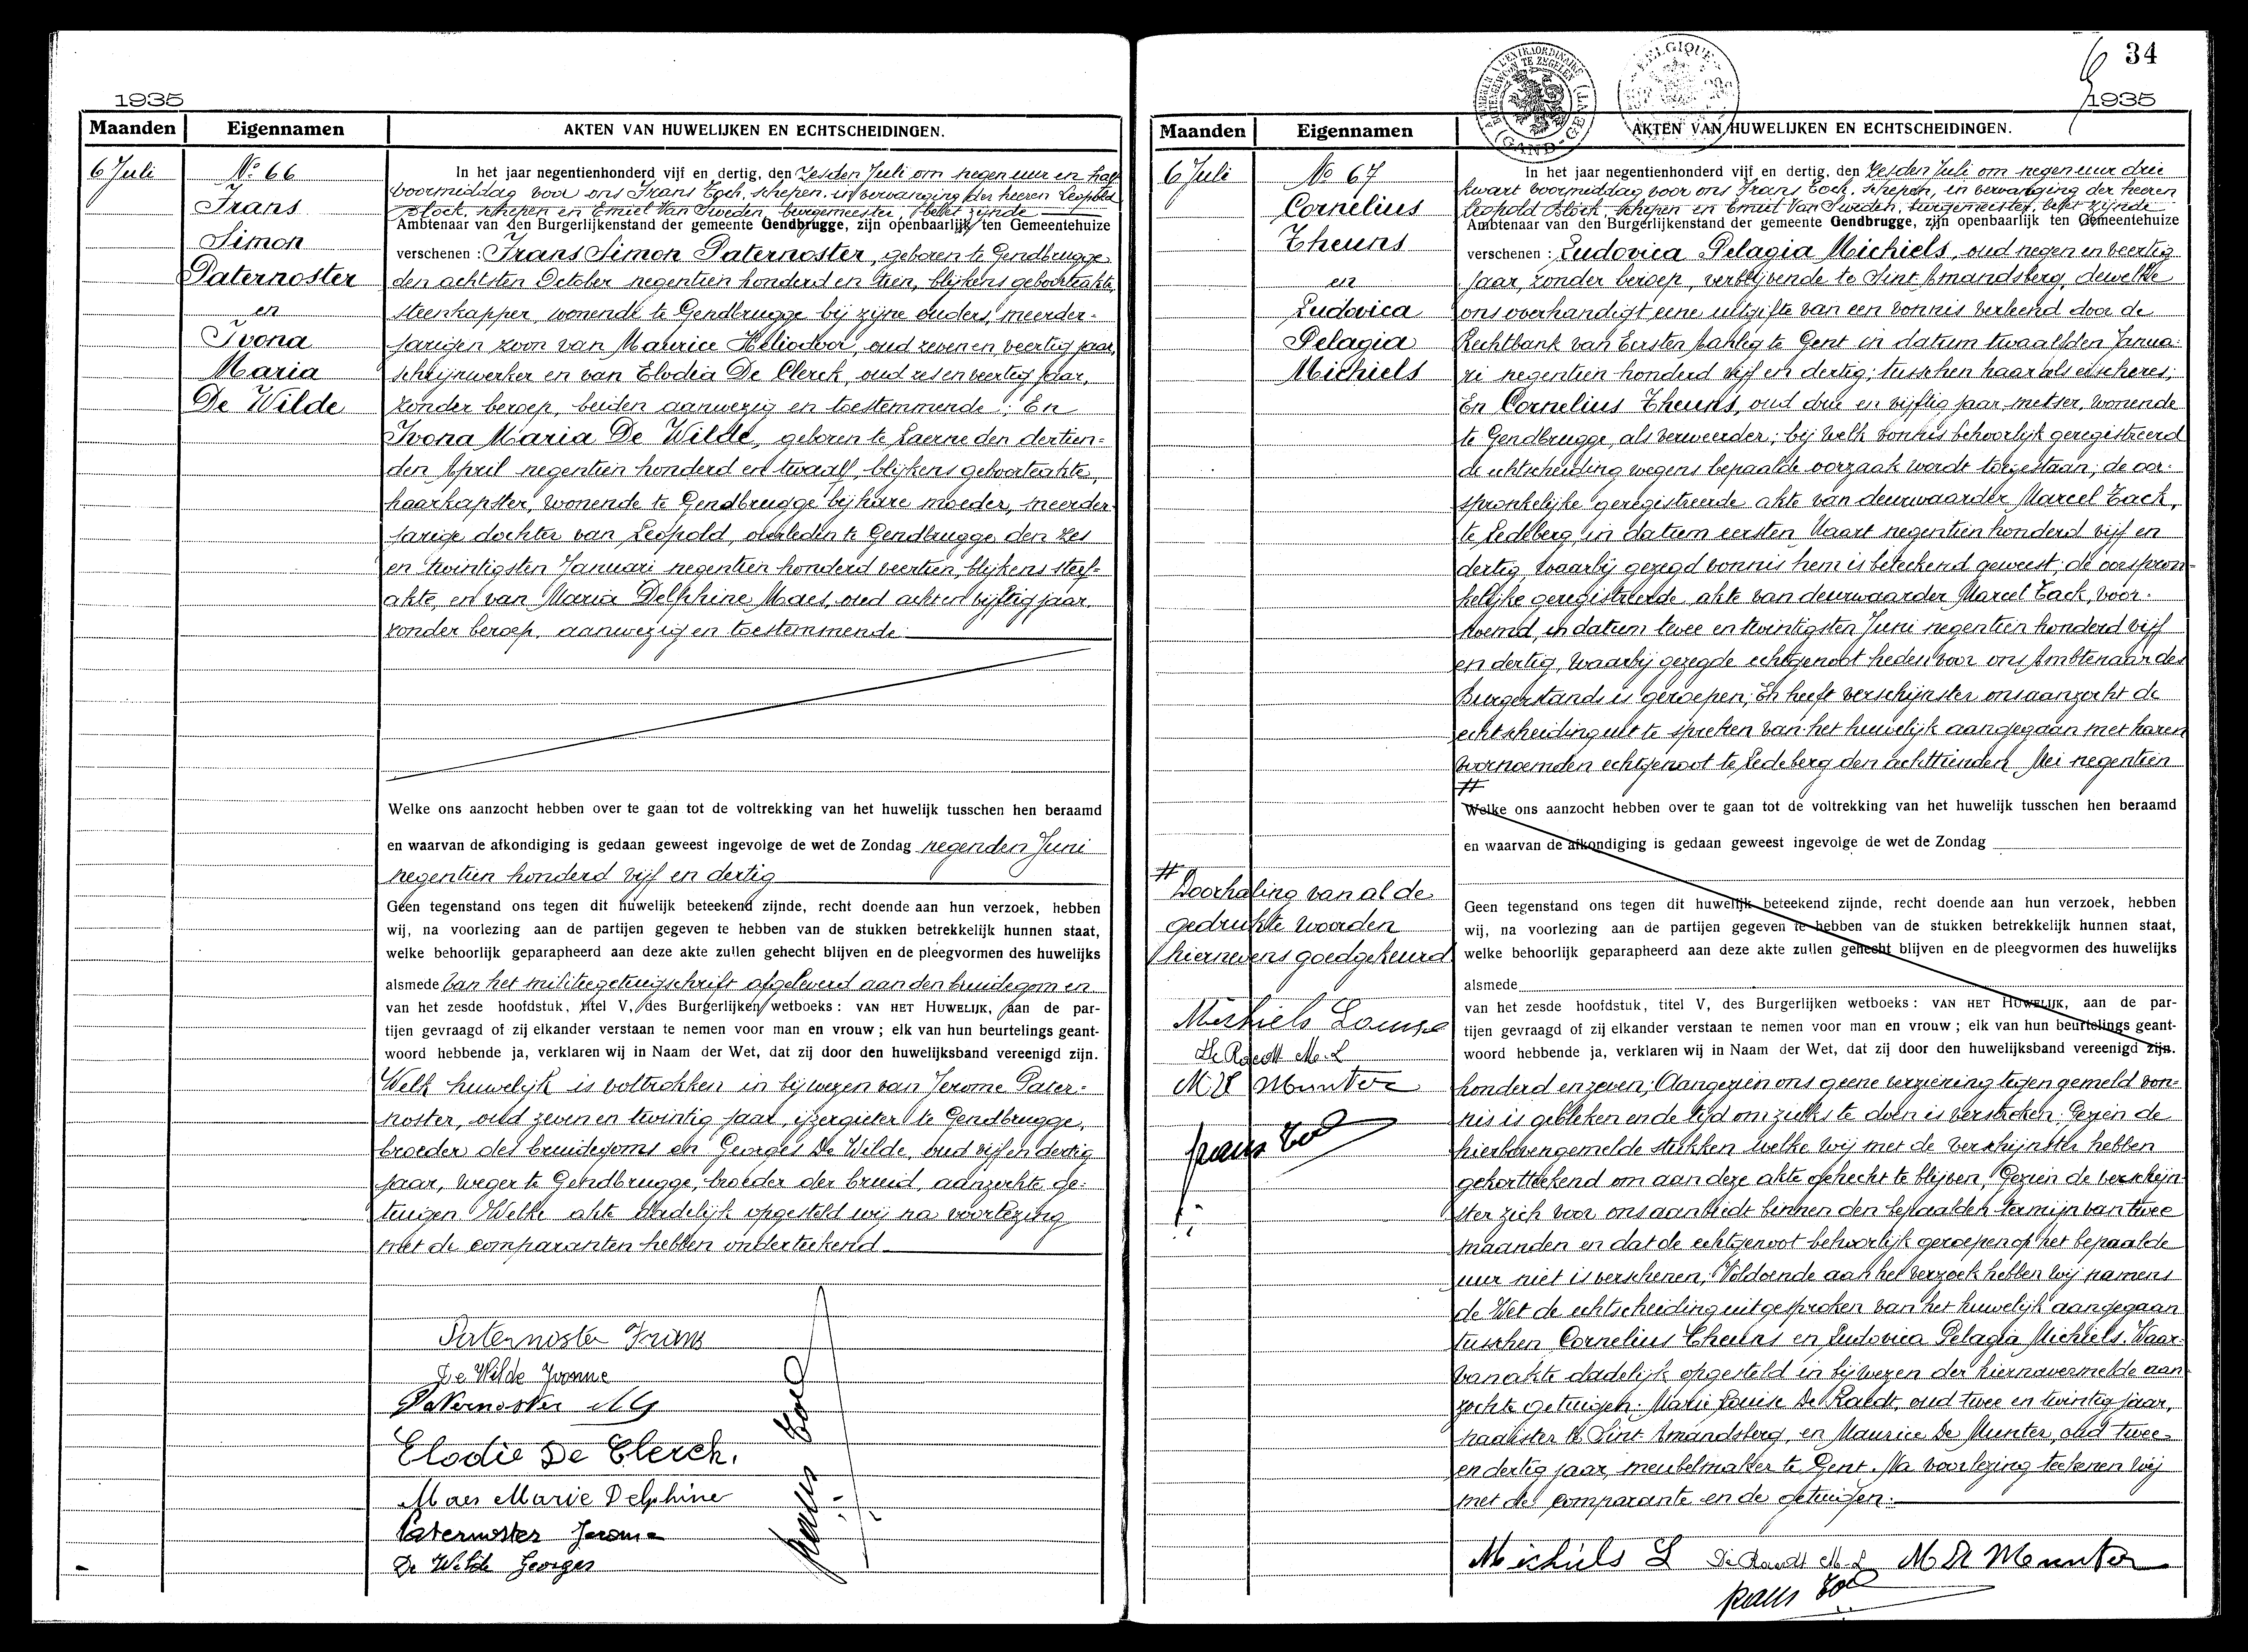 1935
Maanden
Eigennamen
AKTEN VAN HUWELIJKEN EN ECHTSCHEIDINGEN.
6 Juli
No 66
Frans
Simon
Paternoster
en
Ivona
Maria
De Wilde
In het jaar negentienhonderd vijf en dertig, den zesden Juli om negen uur en half
voormiddag voor ons Frans Eeck, schepen, in vervanging der heeren Leopold
Block, schepen en Emiel Van Sweden, burgemeester, belet zijnde
Ambtenaar van den Burgerlijkenstand der gemeente Gendbrugge, zijn openbaarlijk ten Gemeentehuize
verschenen : Frans Simon Paternoster, geboren te Gendbrugge
den achtsten October negentien honderd en tien, blijkens geboorteakte,
steenkapper, wonende te Gendbrugge bij zijne ouders, meerder-
jarigen zoon van Maurice Heliodoor, oud zeven en veertig jaar,
schrijnwerker en van Elodia De Clerck, oud zes en veertig jaar,
zonder beroep, beiden aanwezig en toestemmende ; En
Ivona Maria De Wilde, geboren te Laerne den dertien-
den April negentien honderd en twaalf, blijkens geboorteakte,
haarkapster, wonende te Gendbrugge bij hare moeder, meerder-
jarige dochter van Leopold, overleden te Gendbrugge den zes
en twintigsten Januari negentien honderd veertien, blijkens sterf-
akte, en van Maria Delphine Maes, oud acht en vijftig jaar,
zonder beroep, aanwezig en toestemmende
Welke ons aanzocht hebben over te gaan tot de voltrekking van het huwelijk tusschen hen beraamd
en waarvan de afkondiging is gedaan geweest ingevolge de wet de Zondag negenden Juni
negentien honderd vijf en dertig
Geen tegenstand ons tegen dit huwelijk beteekend zijnde, recht doende aan hun verzoek, hebben
wij, na voorlezing aan de partijen gegeven te hebben van de stukken betrekkelijk hunnen staat,
welke behoorlijk geparapheerd aan deze akte zullen gehecht blijven en de pleegvormen des huwelijks
alsmede van het militiegetuigschrift afgeleverd aan den bruidegom en
van het zesde hoofdstuk, titel V, des Burgerlijken wetboeks : VAN HET HUWELIJK, aan de par-
tijen gevraagd of zij elkander verstaan te nemen voor man en vrouw ; elk van hun beurtelings geant-
woord hebbende ja, verklaren wij in Naam der Wet, dat zij door den huwelijksband vereenigd zijn.
Welk huwelijk is voltrokken in bijwezen van Jerome Pater-
noster, oud zeven en twintig jaar, ijzergieter te Gendbrugge,
broeder des bruidegoms en Georges De Wilde, oud vijf en dertig
jaar, weger te Gendbrugge, broeder der bruid, aanzochte ge-
tuigen. Welke akte dadelijk opgesteld wij na voorlezing
met de comparanten hebben onderteekend
Paternoster Frans
De Wilde Yvonne
Paternoster MG
Elodie De Clerck.
Maes Marie Delphine
Paternoster Jerome
De Wilde Georges
34
1935
BELGIQUE
GAND - GENT
Maanden
Eigennamen
AKTEN VAN HUWELIJKEN EN ECHTSCHEIDINGEN.
6 Juli
No 67
Cornelius
Theuns
en
Ludovica
Pelagia
Michiels
In het jaar negentienhonderd vijf en dertig, den zesden Juli om negen uur drie
kwart voormiddag voor ons Frans Eeck, schepen, in vervanging der heeren
Leopold Block, schepen en Emiel Van Sweden, burgemeester, belet zijnde
Ambtenaar van den Burgerlijkenstand der gemeente Gendbrugge, zijn openbaarlijk ten Gemeentehuize
verschenen : Ludovica Pelagia Michiels, oud negen en veertig
jaar, zonder beroep, verblijvende te Sint Amandsberg, dewelke
ons overhandigt eene uitgifte van een vonnis verleend door de
Rechtbank van Eersten Aanleg te Gent in datum twaalfden Janua-
ri negentien honderd vijf en dertig, tusschen haar als eischeres ;
En Cornelius Theuns, oud drie en vijftig jaar, metser, wonende
te Gendbrugge, als verweerder, bij welk vonnis behoorlijk geregistreerd
de echtscheiding wegens bepaalde oorzaak wordt toegestaan ; de oor-
spronkelijke geregistreerde akte van deurwaarder Marcel Tack,
te Ledeberg, in datum eersten Maart negentien honderd vijf en
dertig, waarbij gezegd vonnis hem is beteekend geweest, de oorspron-
kelijke geregistreerde akte van deurwaarder Marcel Tack, voor-
noemd, in datum twee en twintigsten Juni negentien honderd vijf
en dertig, waarbij gezegde echtgenoot heden voor ons Ambtenaar des
Burgerstands is geroepen ; En heeft verschijnster ons aanzocht de
echtscheiding uit te spreken van het huwelijk aangegaan met haren
voornoemden echtgenoot te Ledeberg den achttienden Mei negentien
#
Welke ons aanzocht hebben over te gaan tot de voltrekking van het huwelijk tusschen hen beraamd
en waarvan de afkondiging is gedaan geweest ingevolge de wet de Zondag
Geen tegenstand ons tegen dit huwelijk beteekend zijnde, recht doende aan hun verzoek, hebben
wij, na voorlezing aan de partijen gegeven te hebben van de stukken betrekkelijk hunnen staat,
welke behoorlijk geparapheerd aan deze akte zullen gehecht blijven en de pleegvormen des huwelijks
alsmede
van het zesde hoofdstuk, titel V, des Burgerlijken wetboeks : VAN HET HUWELIJK, aan de par-
tijen gevraagd of zij elkander verstaan te nemen voor man en vrouw ; elk van hun beurtelings geant-
woord hebbende ja, verklaren wij in Naam der Wet, dat zij door den huwelijksband vereenigd zijn.
#
Doorhaling van al de
gedrukte woorden
hiernevens goedgekeurd
Michiels Louise
De Raedt M.L
M De Munter
honderd en zeven ; Aangezien ons geene verziening tegen gemeld von-
nis is gebleken en de tijd om zulks te doen is verstreken. Gezien de
hierbovengemelde stukken welke wij met de verschijnster hebben
gekortteekend om aan deze akte gehecht te blijven, Gezien de verschijn-
ster zich voor ons aanbiedt binnen den bepaalden termijn van twee
maanden en dat de echtgenoot behoorlijk geroepen op het bepaalde
uur niet is verschenen ; Voldoende aan het verzoek hebben wij namens
de Wet de echtscheiding uitgesproken van het huwelijk aangegaan
tusschen Cornelius Theuns en Ludovica Pelagia Michiels. Waar-
van akte dadelijk opgesteld in bijwezen der hiernavermelde aan-
zochte getuigen : Marie Louise De Raedt, oud twee en twintig jaar,
naaister te Sint Amandsberg, en Maurice De Munter, oud twee-
en dertig jaar, meubelmaker te Gent. Na voorlezing teekenen wij
met de comparante en de getuigen.
Michiels L De Raedt M.L M De Munter